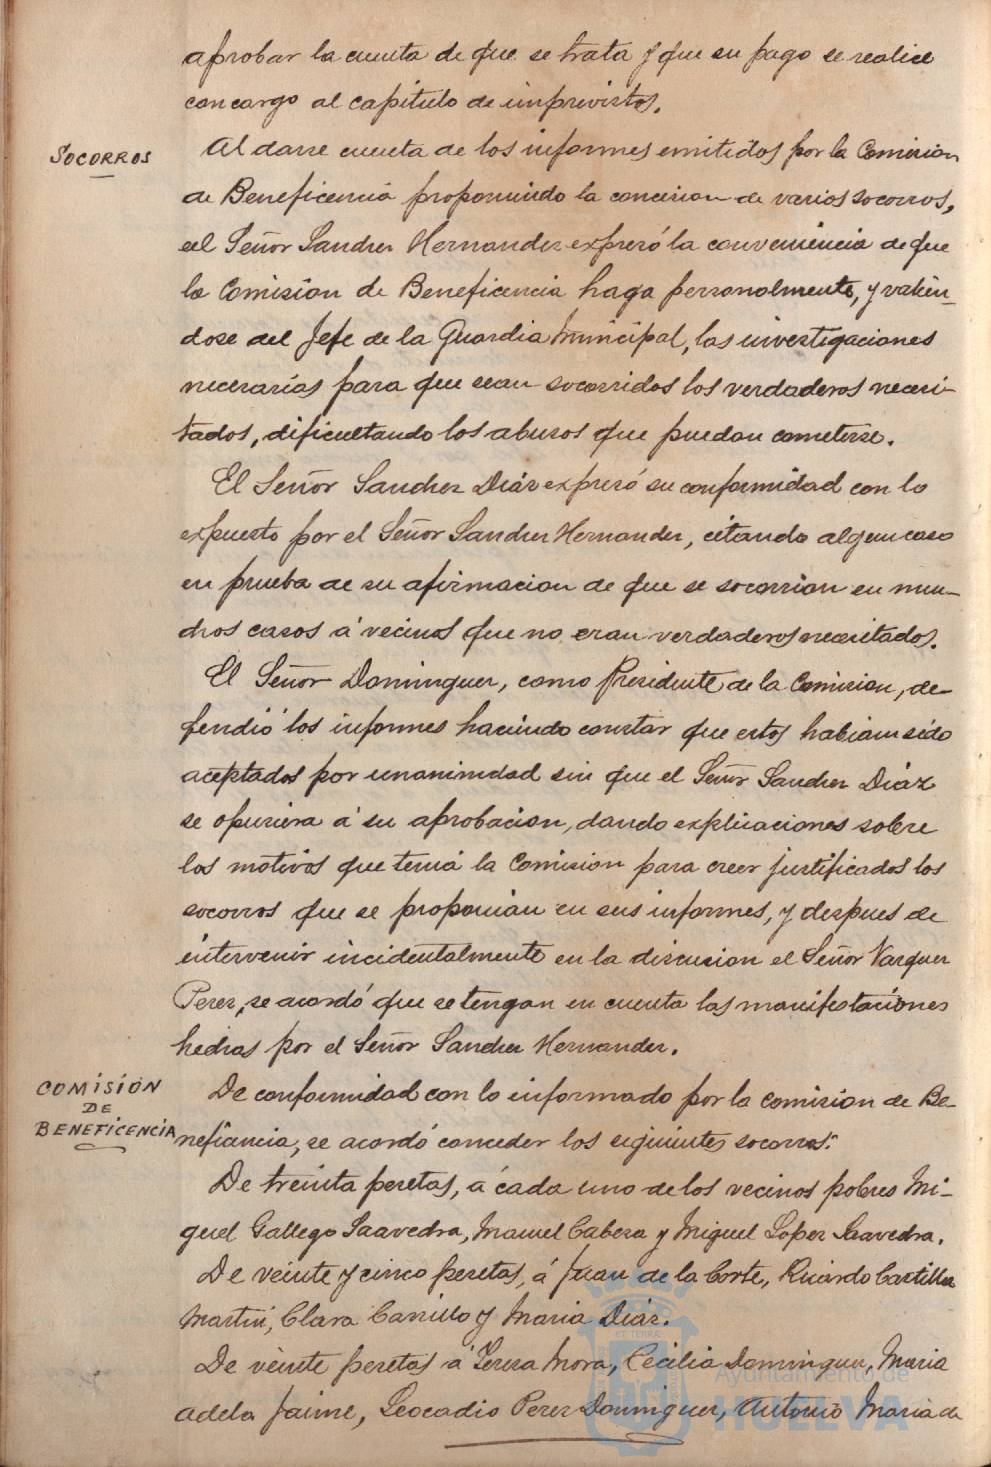 aprobar la cuenta de que se trata y que su pago se realice
con cargo al capitulo de imprevistos.
SOCORROS
Al darse cuenta de los informes emitidos por la Comision
de Beneficencia proponiendo la concesion de varios socorros,
el Señor Sanchez Hernandez expresó la conveniencia de que
la Comisión de Beneficencia haga personalmente, y valien-
dose del Jefe de la Guardia Municipal, las investigaciones
necesarias para que sean socorridos los verdaderos necesi-
tados, dificultando los abusos que puedan cometerse.
El Señor Sanchez Diáz expresó su conformidad con lo
expuesto por el Señor Sanchez Hernandez, citando algun caso
en prueba de su afirmacion de que se socorrian en mu-
chos casos á vecinos que no eran verdaderos necesitados.
El Señor Dominguez, como Presidente de la Comision, de-
fendió los informes haciendo constar que estos habian sido
aceptados por unanimidad sin que el Señor Sanchez Diáz
se opusiera á su aprobacion, dando explicaciones sobre
los motivos que tenia la Comision para creer justificados los
socorros que se proponian en sus informes, y despues de
intervenir incidentalmente en la discusion el Señor Vazquez
Perez, se acordó que se tengan en cuenta las manifestaciones
hechas por el Señor Sanchez Hernandez.
COMISIÓN
DE
BENEFICENCIA
De conformidad con lo informado por la comision de Be-
neficiancia, se acordó conceder los siguientes socorros:
De treinta pesetas, á cada uno de los vecinos pobres Mi-
guel Gallego Saavedra, Manuel Cabeza y Miguel Lopez Saavedra.
De veinte y cinco pesetas, á Juan de la Corte, Ricardo Castilla
Martin, Clara Carrillo y Maria Diáz.
De veinte pesetas á Teresa Mora, Cecilia Dominguez, Maria
Adela Jaime, Leocadio Perez Dominguez, Antonio Maria de
Ayuntamiento de
HUELVA